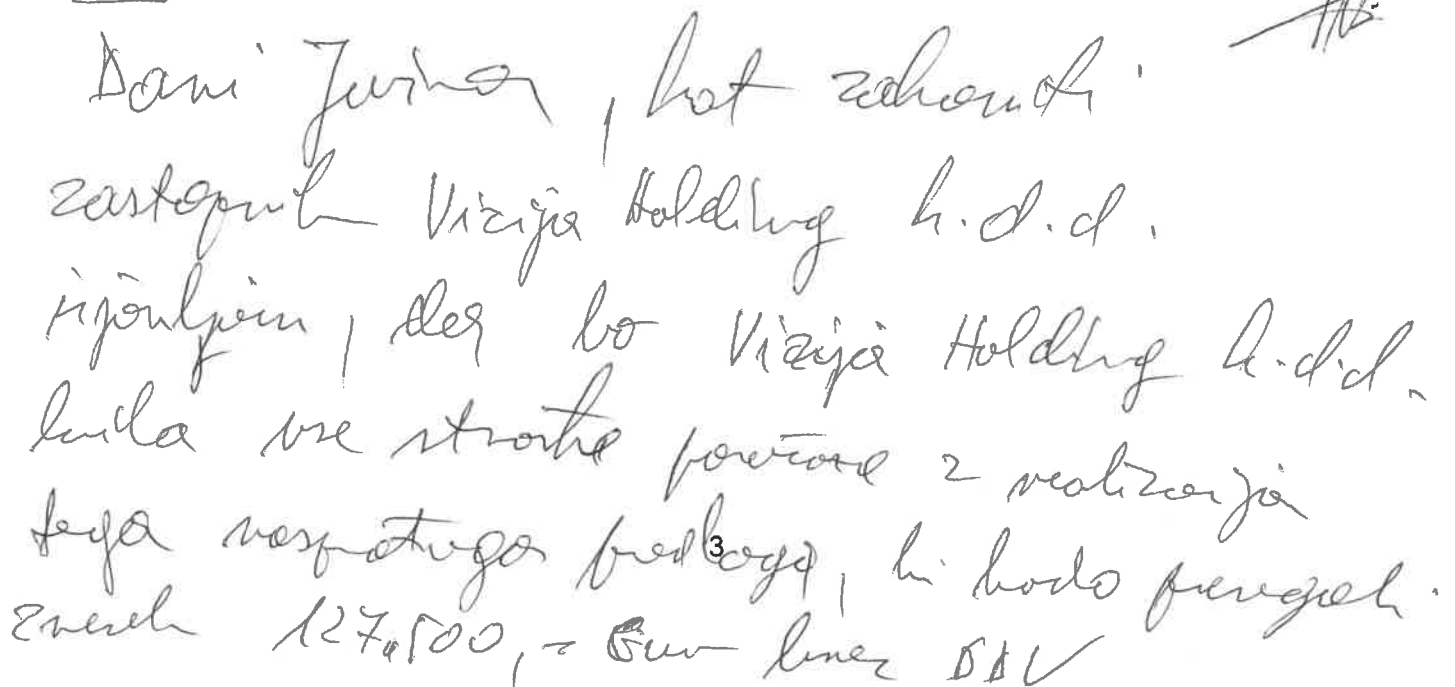 Dani Jurina, kot zakoniti
zastopnik Vizija Holding k.d.d.
izjavljam, da bo Vizija Holding k.d.d.
krila vse stroške povezane z realizacijo
tega nasprotnega predloga, ki bodo presegali
3
znesek 127.500,- Eur brez DDV